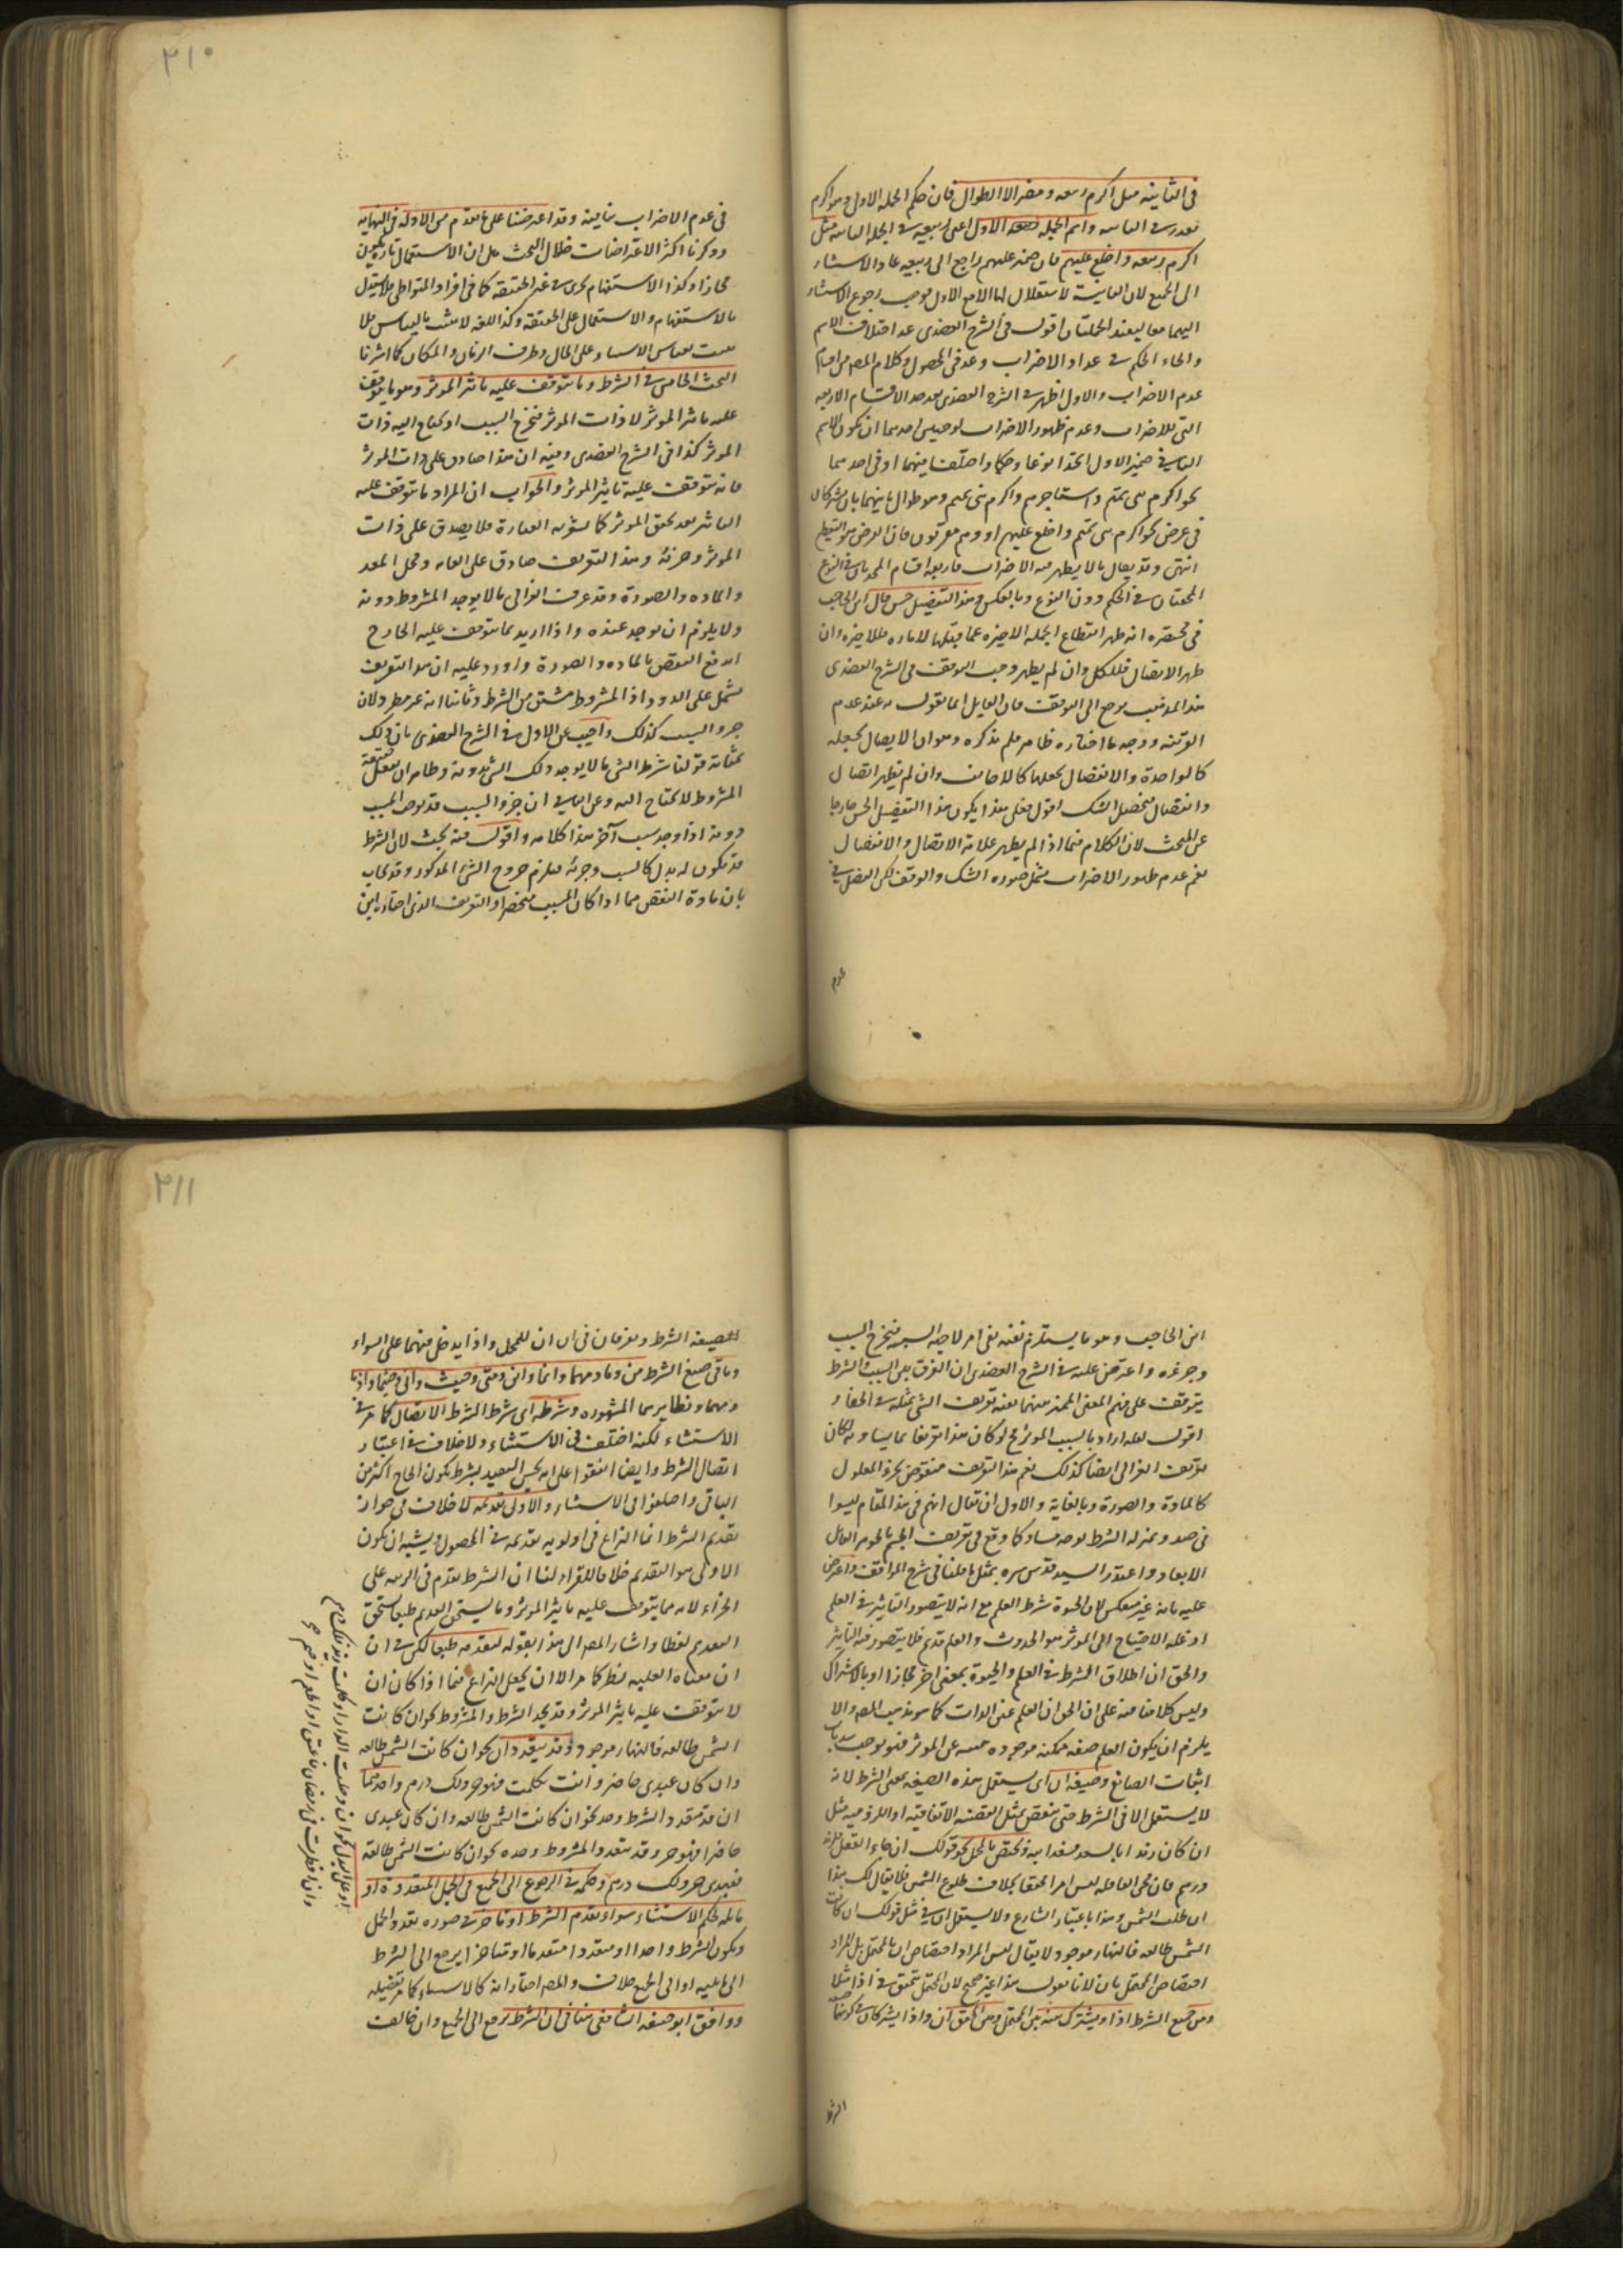 ٢١٠
في الثانية مثل اكرم ربيعه ومضر الا الطوال فان حكم الجملة الاولى وهو اكرم
مقدر في الثانية واسم الجملة الاولى اعنى ربيعه في الجملة الثانية مثل
اكرم ربيعه واخلع عليهم فان ضمير عليهم راجع الى ربيعه عاد الاستثناء
الى الجميع لان الثانية لا استقلال لها الا مع الاولى فوجب رجوع الاستثناء
اليهما معا اقول في الشرح العضدى عد اختلاف الاسم
والحكم في عداد الاضراب وعد في المحصول وكلام المصر من اقسام
عدم الاضراب والاول اظهر في الشرح العضدى بعد عد الاقسام الاربعه
التى للاضراب وعدم ظهور الاضراب احدهما ان يكون الاسم
الثانى ضمير الاول اتحدا نوعا وحكما واختلفا فيهما او في احدهما
نحو اكرم بنى تميم واستاجرهم واكرم بنى تميم وهم طوال ثانيهما بان يشتركان
في غرض نحو اكرم بنى تميم واخلع عليهم او وهم مقربون فان الغرض هو التعظيم
انتهى وقد يقال ما لا يظهر فيه الاضراب فاربعة اقسام المتحدتان في النوع
في الحكم دون النوع وبالعكس وهذا التفصيل حسن قال ابن الحاجب
في مختصره انه ظهر انقطاع الجملة الاخيرة عما قبلها للاخيره وان
ظهر الاتصال فللكل وان لم يظهر وجب التوقف في الشرح العضدى
هذا المذهب يرجع الى الوقف فان القايل انما يقول به عند عدم
القرينه ووجه ما اختاره ظاهر فلم يذكره وهو ان الاتصال يجعلها
كالواحدة والانفصال يجعلها كالاجانب وان لم يظهر اتصال
وانفصال فيحصل الشك اقول فعلى هذا يكون هذا التفصيل الحسن خارجا
عن المبحث لان الكلام فيما اذا لم يظهر علامة الاتصال والانفصال
نعم عدم ظهور الاضراب يشمل صوره الشك والوقف لكن الفصل في
عدم
في عدم الاضراب ثانية وقد اعترضنا على ما تقدم من الادله في النهايه
وذكرنا اكثر الاعتراضات خلال البحث على ان الاستعمال تارة يكون
مجازا وكذا الاستفهام يجرى في غير الحقيقة كما في افراد المتواطى فلا يستدل
بالاستفهام والاستعمال على الحقيقة وكذا اللغه لا تثبت بالقياس فلا
يثبت بقياس الاستثناء على الحال وظرف الزمان والمكان كما اشرنا
البحث الخامس في الشرط وما يتوقف عليه تاثير الموثر وهو ما يتوقف
عليه تاثير الموثر لا ذات الموثر فيخرج السبب اذ يحتاج اليه ذات
الموثر كذا في الشرح العضدى وفيه ان هذا صادق على ذات الموثر
فانه يتوقف عليه تاثير الموثر والجواب ان المراد ما يتوقف عليه
التاثير بعد تحقق الموثر كما يشعر به العبارة فلا يصدق على ذات
الموثر وجزئه وهذا التعريف صادق على الغايه وعلى المعد
والماده والصورة وقد عرف الغزالى بما لا يوجد المشروط دونه
ولا يلزم ان يوجد عنده واذا اريد بما يتوقف عليه الخارج
اندفع النقض بالماده والصورة واورد عليه ان هذا التعريف
يشتمل على الدور اذ المشروط مشتق من الشرط وثانيا انه غير مطرد لان
جزء السبب كذلك واجيب عن الاول في الشرح العضدى بان ذلك
بمثابة قولنا شرط الشى ما لا يوجد ذلك الشى بدونه وظاهر ان تعقل حقيقة
المشروط لا يحتاج اليه وعن الثانى ان جزء السبب قد يوجد المسبب
دونه اذا وجد سبب آخر هذا كلامه واقول فيه بحث لان الشرط
قد يكون له بدل كالسبب وجزئه فيلزم خروج الشئ المذكور وقد يجاب
بان مادة النقض مما اذا كان السبب منحصرا والتعريف الذى اختاره ابن
٢١١
ابن الحاجب وهو ما يستلزم نفيه نفى امر لا جهة السببيه فيخرج السبب
وجزءه واعترض عليه في الشرح العضدى ان الفرق بين السبب والشرط
يتوقف على فهم المعنى المميز بينهما ففيه تعريف الشى بمثله في الخفاء
اقول لعله اراد بالسبب الموثر لو كان هذا تعريفا مباينا ولو كان
تعريف الغزالى ايضا كذلك نعم هذا التعريف منقوض بجزء المعلول
كالمادة والصورة وبالغاية والاول ان يقال انهم في هذا المقام ليسوا
في صدد تمييز الشرط بوجه مساو كما وقع في تعريف الجسم بالجوهر القابل
للابعاد واعتذر السيد قدس سره بمثل ما قلنا في شرح المواقف واعترض
عليه بانه غير منعكس لان الحيوة شرط العلم مع انه لا يتصور التاثير في العلم
اذ علة الاحتياج الى الموثر هو الحدوث والعلم قديم فلا يتصور فيه التاثير
والحق ان اطلاق الشرط في العلم والحيوة بمعنى اخر مجازا او بالاشتراك
وليس كلامنا فيه على ان الحق ان العلم عين الذات كما هو مذهب المصر والا
يلزم ان يكون العلم صفه ممكنه موجوده عن الموثر فهو يوجب سد باب
اثبات الصانع وصيغه ان اى يستعمل هذه الصيغه بمعنى الشرط لانه
لا يستعمل الا في الشرط حتى ينتقض بمثل القضيه الاتفاقيه او اللزوميه مثل
ان كان زيد ويختص بالمحتمل نحو قولك ان جاء القفل فله
درهم فان مجى القافله ليس امرا محققا بخلاف طلوع الشمس فلا يقال لك هذا
ان طلعت الشمس وهذا باعتبار الشارع ولا يستعمل ان في مثل قولك ان كانت
الشمس طالعه فالنهار موجود لا يقال ليس المراد اختصاص ان بالمحتمل بل المراد
اختصاص المحتمل بان لانا نقول هذا غير صحيح لان المحتمل يتحقق في اذا مثلا
ومن صيغ الشرط اذا ويشترك فيه بين المحتمل وبين المحقق ان واذا يشتركان في كونهما
الشرط
لصيغه الشرط ويفرقان في ان ان للمحتمل واذا يدخل فيهما على السواء
وباقى صيغ الشرط من وما ومهما وانما واين ومتى وحيث وانى وحيثما واذما
ومهما ونظايرها المشهوره وشرطه اى شرط الشرط الاتصال كما مر في
الاستثناء لكنه اختلف في الاستثناء ولا خلاف في اعتبار
اتصال الشرط وايضا اتفقوا على انه يحسن التقييد بشرط يكون الخارج اكثر من
الباقى واختلفوا في الاستثناء والاولى تقديمه لا خلاف في جواز
تقديم الشرط انما النزاع في اولويه تقديمه في المحصول ويشبه ان يكون
الاولى هو التقديم خلافا للفراء لنا ان الشرط مقدم في الرتبه على
الجزاء لانه مما يتوقف عليه تاثير الموثر وما يستحق التقديم طبعا يستحق
التقديم لفظا واشار المصر الى هذا بقوله لتقدمه طبعا لكن في ان
ان معناه العليه نظر كما مر الا ان يجعل النزاع فيما اذا كان ان
لا يتوقف عليه تاثير الموثر وقد يتحد الشرط والمشروط نحو ان كانت
الشمس طالعه فالنهار موجود وقد يتعددان نحو ان كانت الشمس طالعه
وان كان عبدى حاضرا وانت تكلمت فهو حر ولك درهم واحدهما
ان قد يتعدد الشرط وحده نحو ان كانت الشمس طالعه وان كان عبدى
حاضرا فهو حر وقد يتعدد المشروط وحده نحو ان كانت الشمس طالعة
فعبدى حر ولك درهم وحكمه في الرجوع الى الجميع في الجمل المتعددة او
ما يليه حكم الاستثناء سواء تقدم الشرط او تاخر في صوره تعدد الجمل
ويكون الشرط واحدا او متعددا متقدما او متاخرا يرجع الى الشرط
الى ما يليه او الى الجميع خلاف والمصر اختار انه كالاستثناء كما مر تفصيله
ووافق ابو حنيفه الشافعى هنا في ان الشرط يرجع الى الجميع وان خالف
او على البدل نحو ان دخلت الدار او كلمت زيدا
وان افطرت في رمضان فاعتق او اطعم او صم